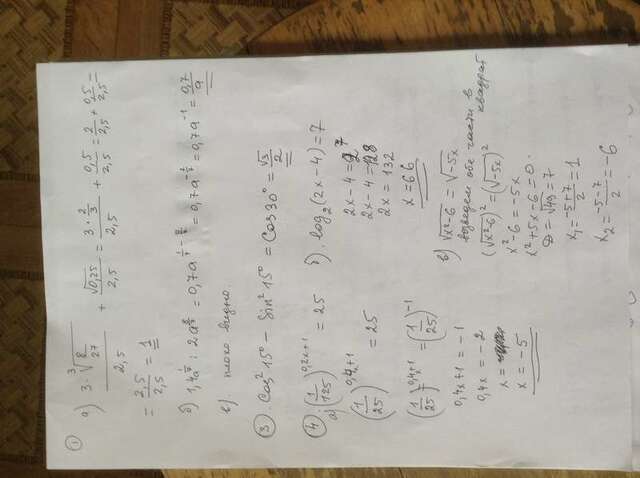 ①
а) (3·∛(8/27))/2,5 + √0,25/2,5 = (3·2/3)/2,5 + 0,5/2,5 = 2/2,5 + 0,5/2,5 =
= 2,5/2,5 = 1
= 0,7a⁻¹ = 0,7/a
в). плохо видно.
③. Cos²15° − Sin²15° = Cos30° = √3/2
④
а) (1/125)^(0,2x+1) = 25
= 25
= (1/25)⁻¹
0,4x+1 = −1
0,4x = −2
x =
x = −5
б). log₂(2x−4) = 7
2x−4 = 2⁷
2x−4 = 128
2x = 132
x = 66
в) √(x²−6) = √(−5x)
возведем обе части в
квадрат
(√(x²−6))² = (√(−5x))²
x²−6 = −5x
x²+5x−6 = 0.
D = √49 = 7
x₁ = (−5+7)/2 = 1
x₂ = (−5−7)/2 = −6